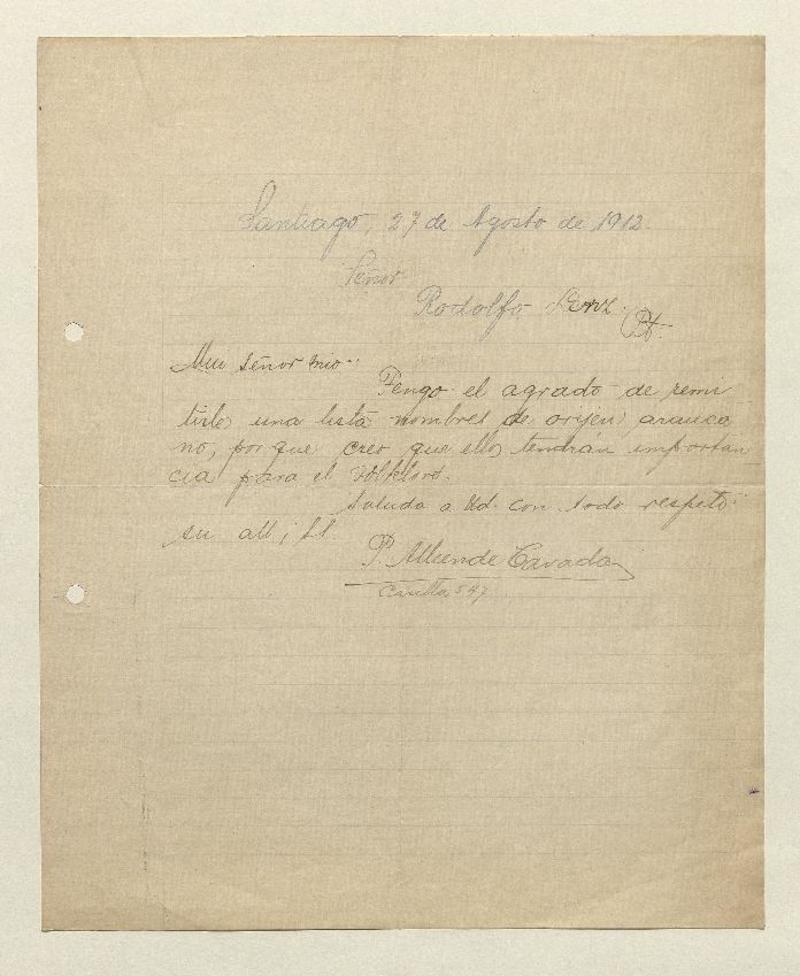 Santiago, 27 de Agosto de 1912.
Señor
Rodolfo Lenz.
Pte.
Mui señor mio:
Tengo el agrado de remi
tirle una lista nombres de orijen arauca
no, porque creo que ellos tendrán importan
cia para el folklore.
Saluda a Ud. con todo respeto
su att i SS.
P. Allende Cavada
Casilla 547